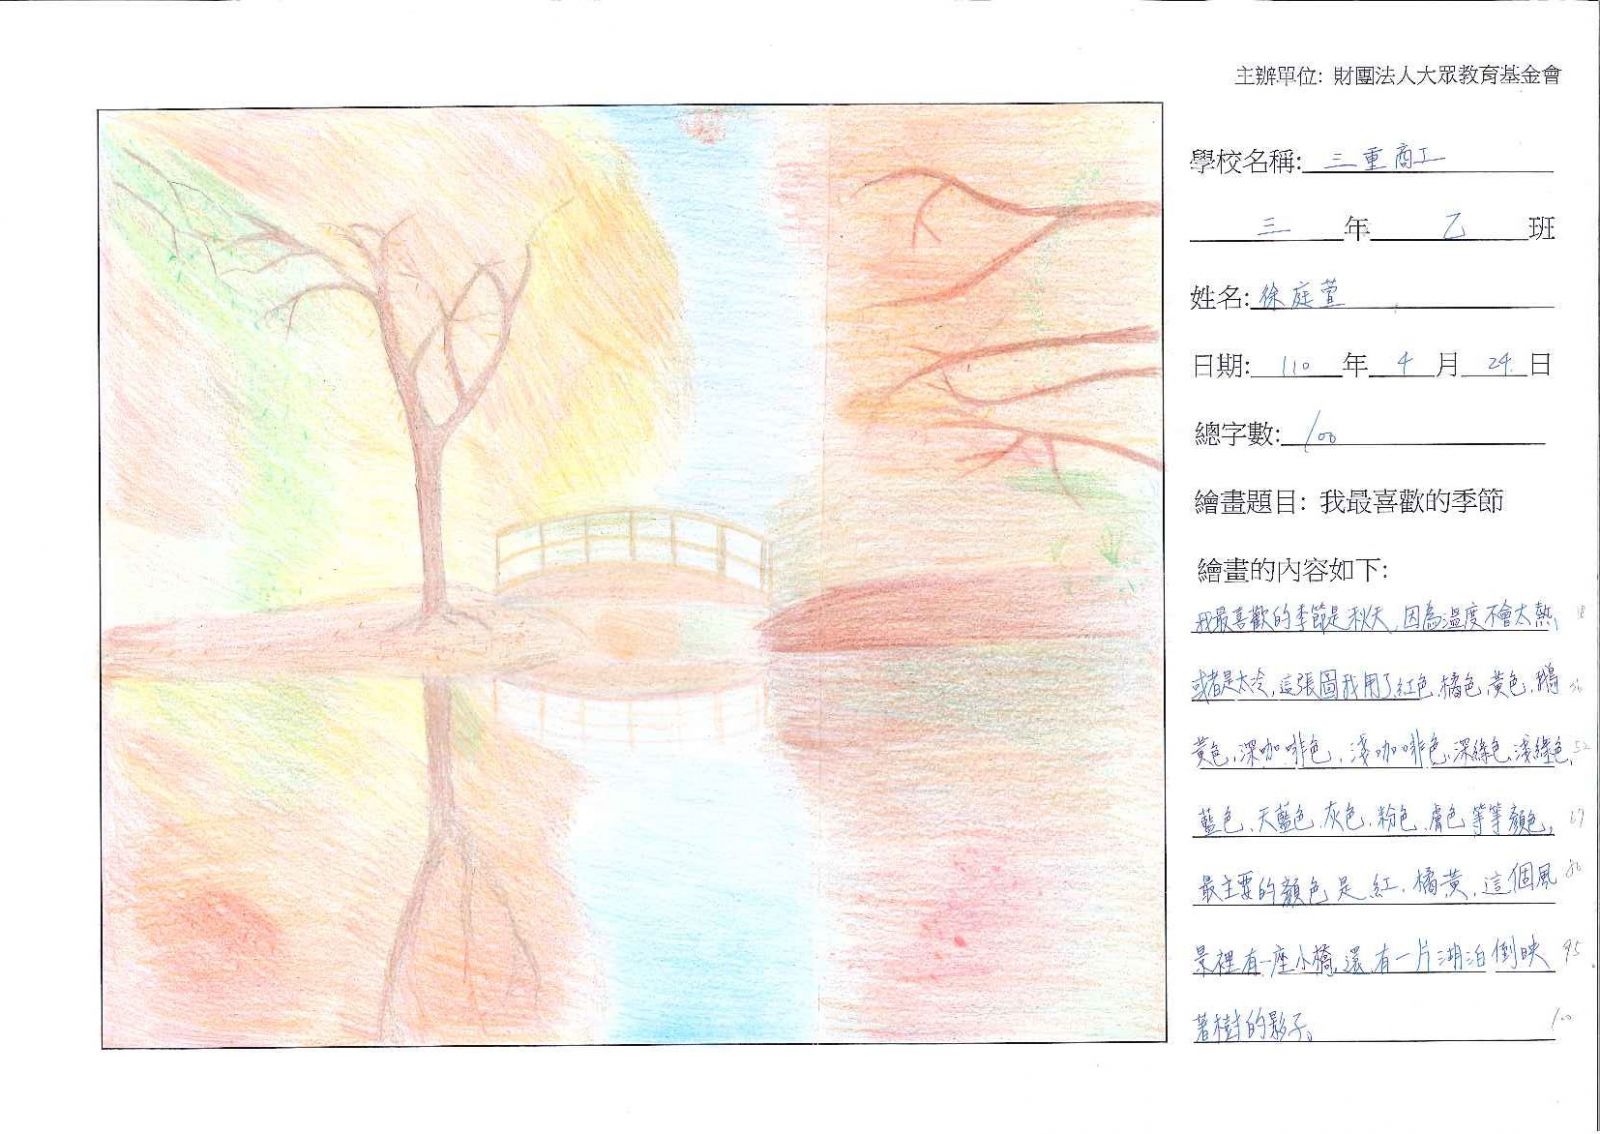 主辦單位: 財團法人大眾教育基金會
學校名稱: 三重商工
三年乙班
姓名: 徐庭萱
日期: 110年4月24日
總字數: 100
繪畫題目: 我最喜歡的季節
繪畫的內容如下:
我最喜歡的季節是秋天,因為溫度不會太熱, 18
或者是太冷,這張圖我用了紅色、橘色、黃色、鵝
黃色、深咖啡色、淺咖啡色、深綠色、淺綠色、 52
藍色、天藍色、灰色、粉色、膚色等等顏色,
最主要的顏色是紅、橘黃,這個風 80
景裡有一座小橋,還有一片湖泊倒映 95
著樹的影子。 100